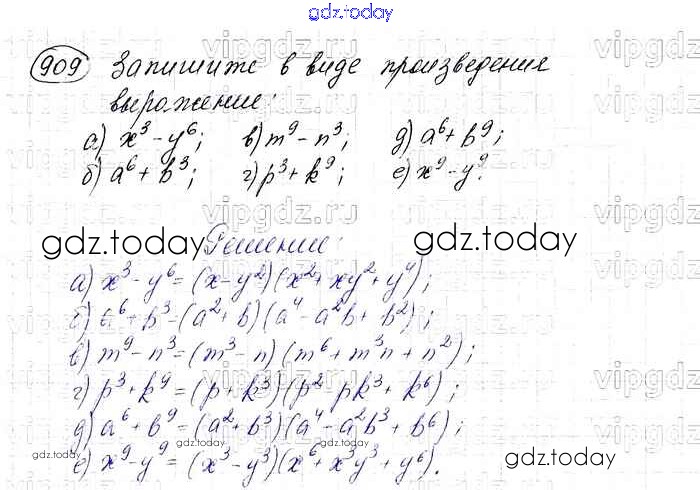 gdz.today
909 Запишите в виде произведения
выражение:
а) x³ - y⁶; в) m⁹ - n³; д) a⁶ + b⁹;
б) a⁶ + b³; г) p³ + k⁹; е) x⁹ - y⁹.
gdz.today Решение: gdz.today
а) x³ - y⁶ = (x - y²)(x² + xy² + y⁴);
б) a⁶ + b³ = (a² + b)(a⁴ - a²b + b²);
в) m⁹ - n³ = (m³ - n)(m⁶ + m³n + n²);
г) p³ + k⁹ = (p + k³)(p² - pk³ + k⁶);
д) a⁶ + b⁹ = (a² + b³)(a⁴ - a²b³ + b⁶);
gdz.today gdz.today gdz.today
е) x⁹ - y⁹ = (x³ - y³)(x⁶ + x³y³ + y⁶).
gdz.today